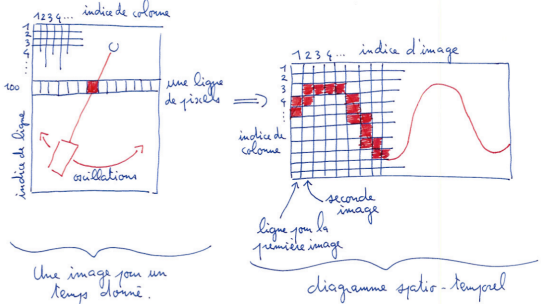 indice de colonne
1 2 3 4 ...
1
2
3
4
⋮
100
indice de ligne
une ligne
de pixels
oscillations
Une image pour un
temps donné.
indice d'image
1 2 3 4 ...
1
2
3
4
⋮
indice de
colonne
seconde
image
ligne pour la
première image
diagramme spatio-temporel